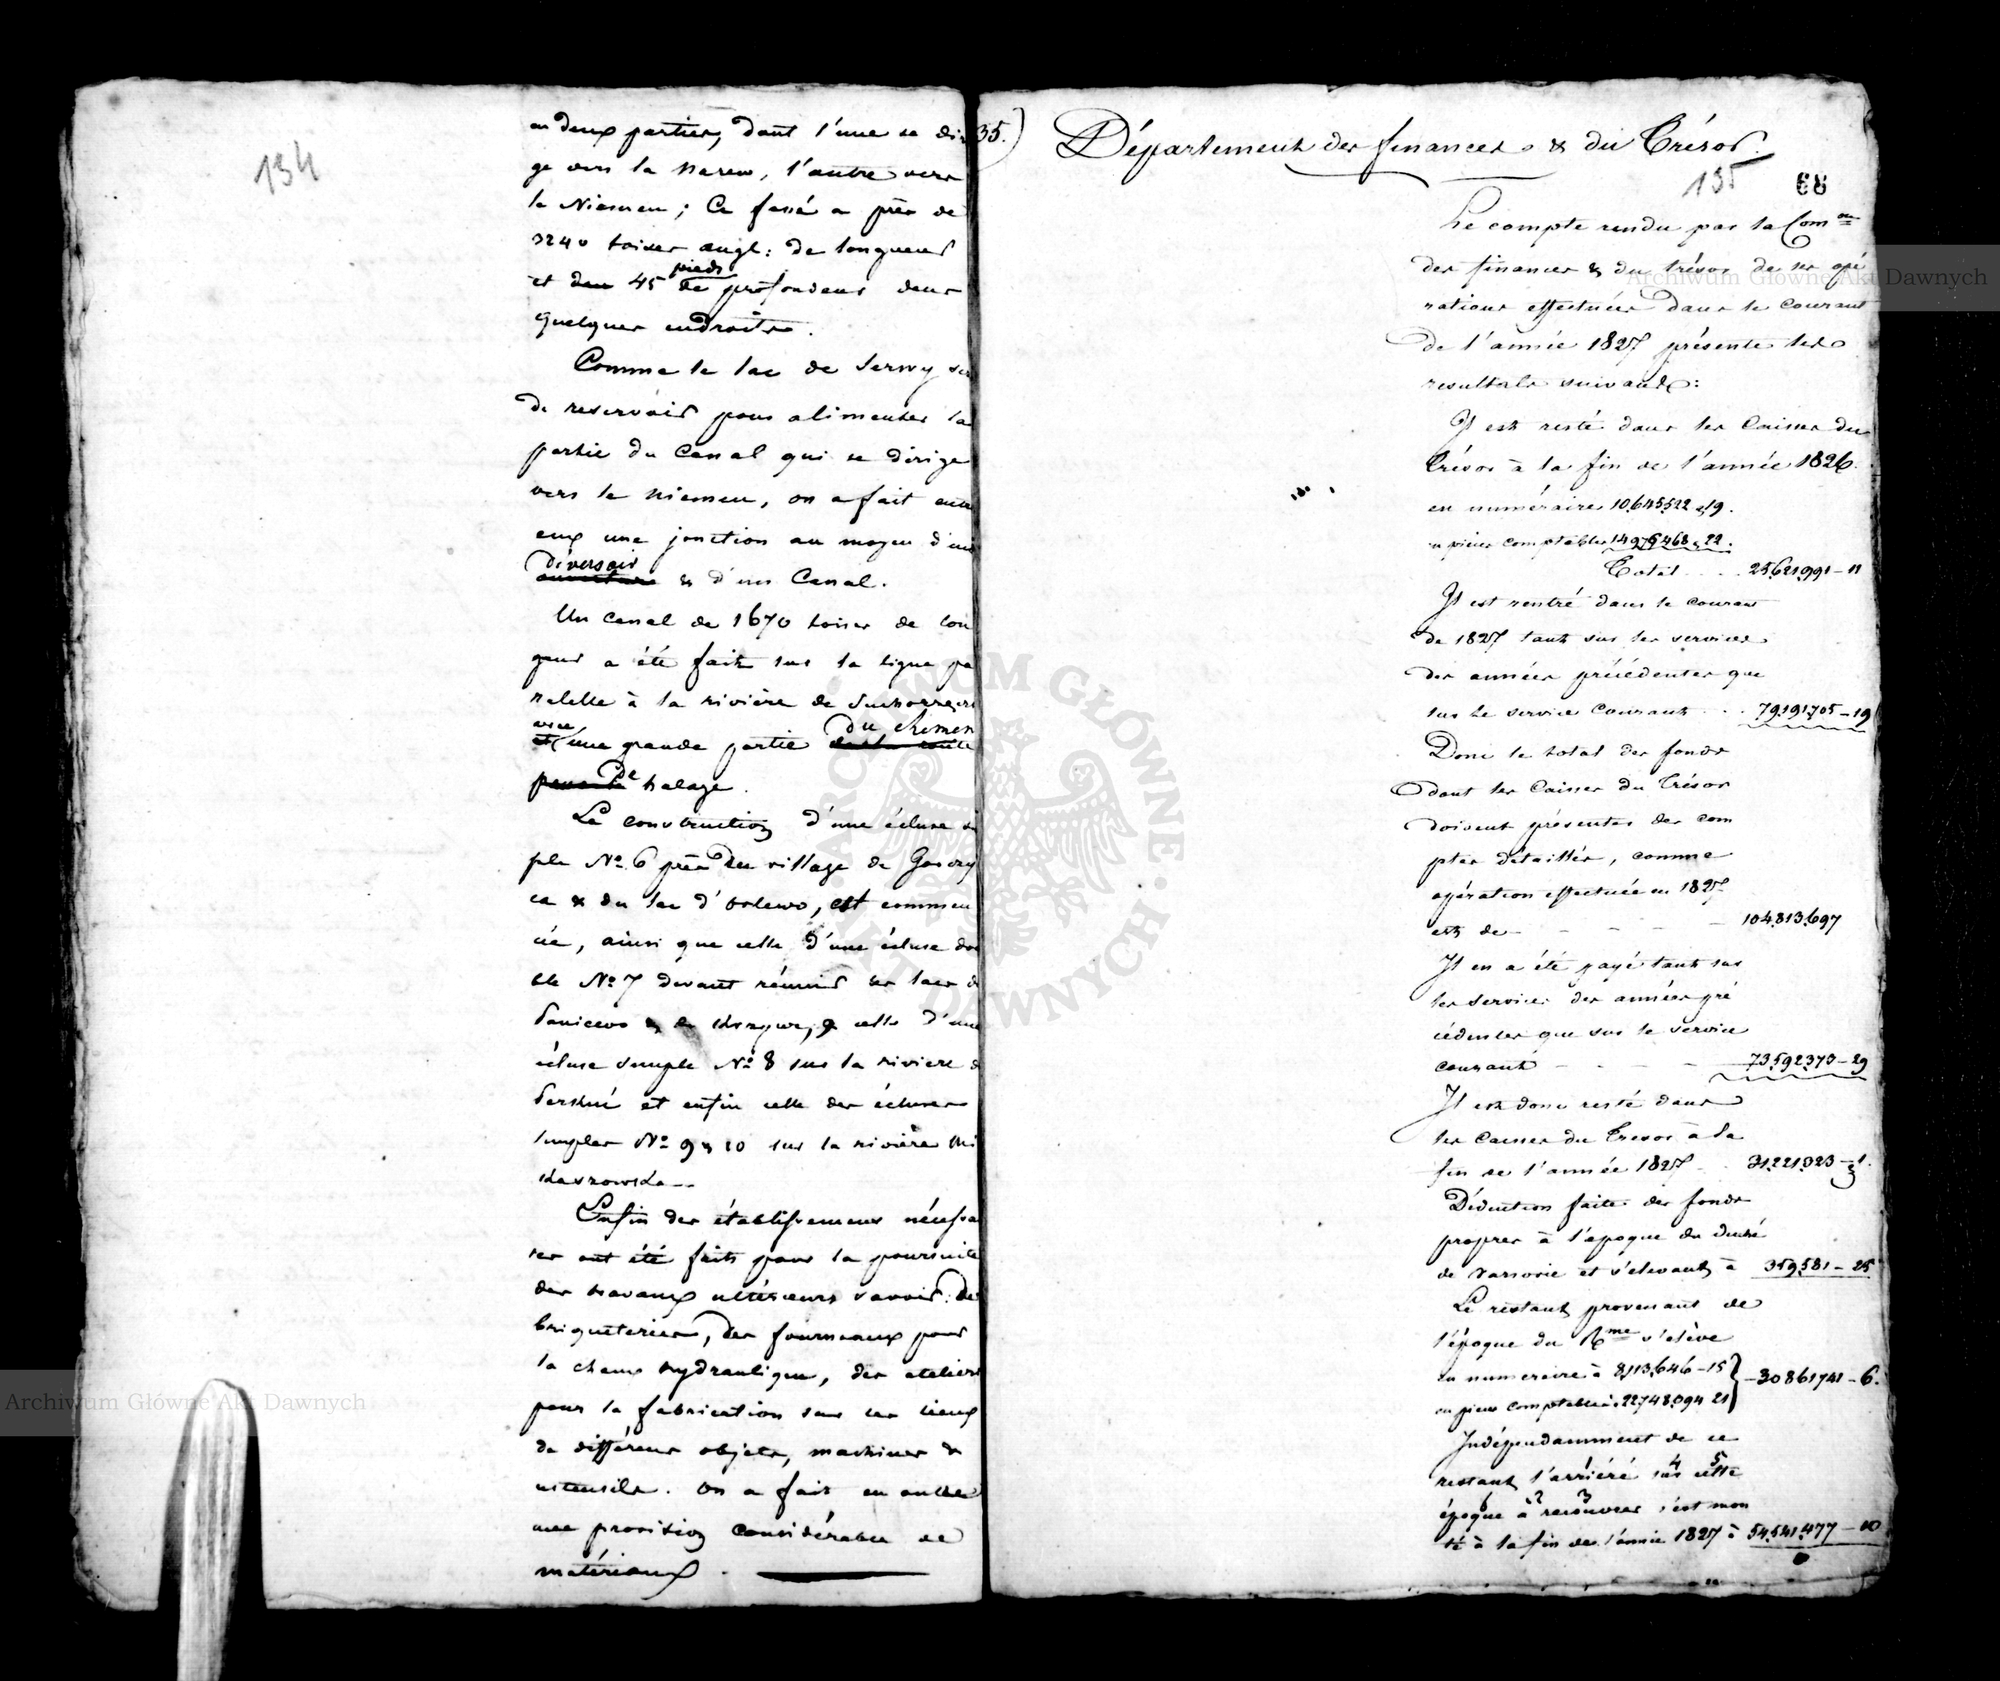 134
en deux parties, dont l'une se diri
ge vers la Narew, l'autre vers
le Niemen; Ce fossé a près de
3240 toises angl: de longueur
et dans 45 pieds de profondeur dans
quelques endroits.
Comme le lac de Serwy sert
de reservoir pour alimenter la
partie du Canal qui se dirige
vers le Niemen, on a fait entre
eux une jonction au moyen d'un
déversoir
ouverture & d'un Canal.
Un canal de 1670 toises de lon
gueur a été fait sur la ligne pa
ralelle à la rivière de
avec du chemin
et une grande partie de la route
pour le de halage.
La construction d'une écluse sim
ple No 6 près du village de Gorczy
ca & du lac d'Orlewo, est commen
cée, ainsi que celle d'une écluse dou
ble No 7 devant réunir les lacs de
Paniewo & de Krzywe, & celle d'une
écluse simple No 8 sur la riviere de
Perstuń et enfin celle des écluses
simples No 9 & 10 sur la rivière Mi
kaszowska
Enfin des établissemens nécessai
res ont été faits pour la poursuite
des travaux ultérieurs savoir: des
briqueteries, des fourneaux pour
la chaux hydraulique, des ateliers
pour la fabrication sur les lieux
de différens objets, machines &
ustensils. On a fait en outre
une provision considérable de
matériaux.
35.)
Département des finances & du Trésor.
135 68
Le compte rendu par la Comon
des finances & du trésor de ses opé
rations effectuées dans le courant
de l'année 1827 présente les
resultats suivants:
Il est resté dans les Caisses du
trésor à la fin de l'année 1826.
en numéraire 10,645,522 „ 19.
en pièces comptables 14,976,468 „ 22.
Total . . . 25,621,991 – 11
Il est rentré dans le courant
de 1827 tant sur les services
des années précédentes que
sur le service courant . . 79,191,705 – 19
Donc le total des fonds
dont les Caisses du Trésor
doivent présenter des com
ptes détaillés, comme
opération effectuée en 1827
est de – – – – – 104,813,697
Il en a été payé tant sur
les services des années pré
cédentes que sur le service
courant – – – – 73,592,373 – 29
Il est donc resté dans
les Caisses du Tresor à la
fin de l'année 1827 . . 31,221,323 – 1.
Déduction faite des fonds
propres à l'époque du duché
de Varsovie et s'élevant à 359,581 – 25
Le restant provenant de
l'époque du Rme s'élève
en numeraire à 8,113,646 – 15 } – 30,861,741 – 6.
en pièces comptables à 22,748,094 21
Indépendamment de ce
restant l'arriéré sur cette
époque à recouvrer s'est mon
té à la fin de l'année 1827 à 54,541,477 – 10
Archiwum Główne Akt Dawnych
Archiwum Główne Akt Dawnych
ARCHIWUM GŁÓWNE AKT DAWNYCH